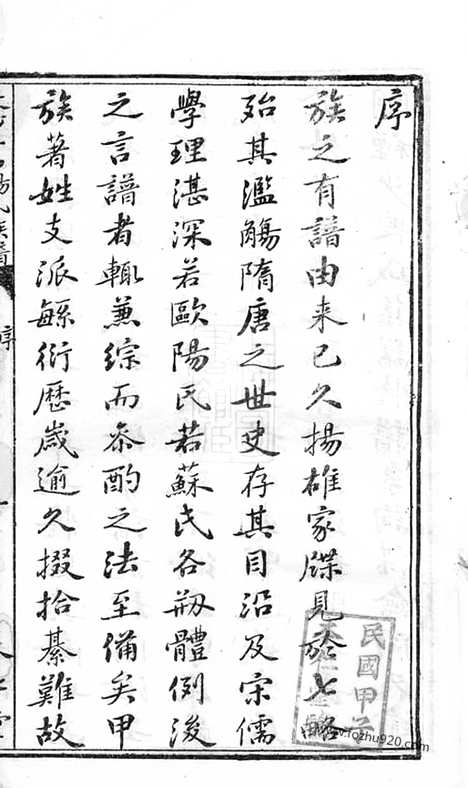 序
族之有譜由来已久揚雄家牒見於七略
殆其濫觴隋唐之世史存其目沿及宋儒
學理湛深若歐陽氏若蘇氏各刱體例後
之言譜者輒兼綜而叅酌之法至備矣甲
族著姓支派緜衍歷歲逾久掇拾綦難故
氏族譜
序
民國甲子
www.fozhu920.com